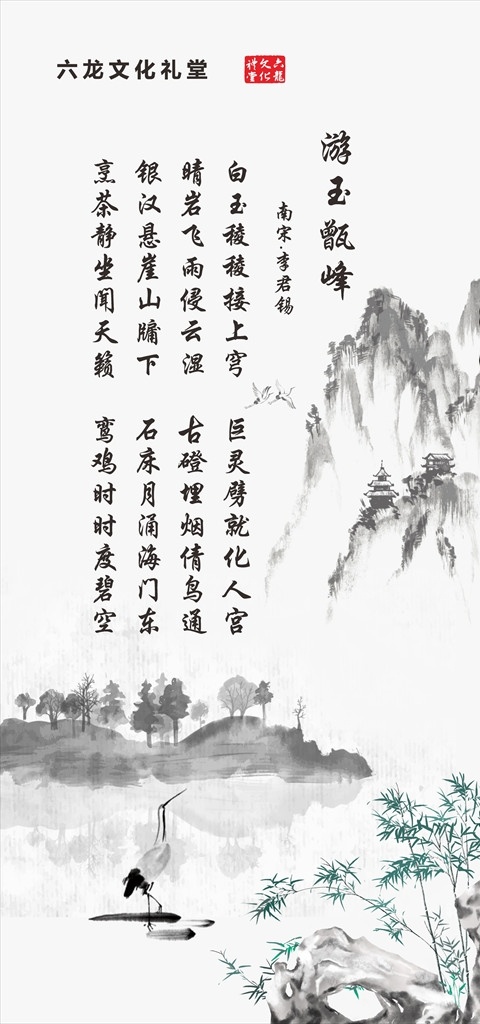 六龙文化礼堂
六龍
文化
禮堂
游玉甑峰
南宋·李君锡
白玉稜稜接上穹 巨灵劈就化人宫
晴岩飞雨侵云湿 古磴埋烟倩鸟通
银汉悬崖山牗下 石床月涌海门东
烹茶静坐闻天籁 鸾鸡时时度碧空